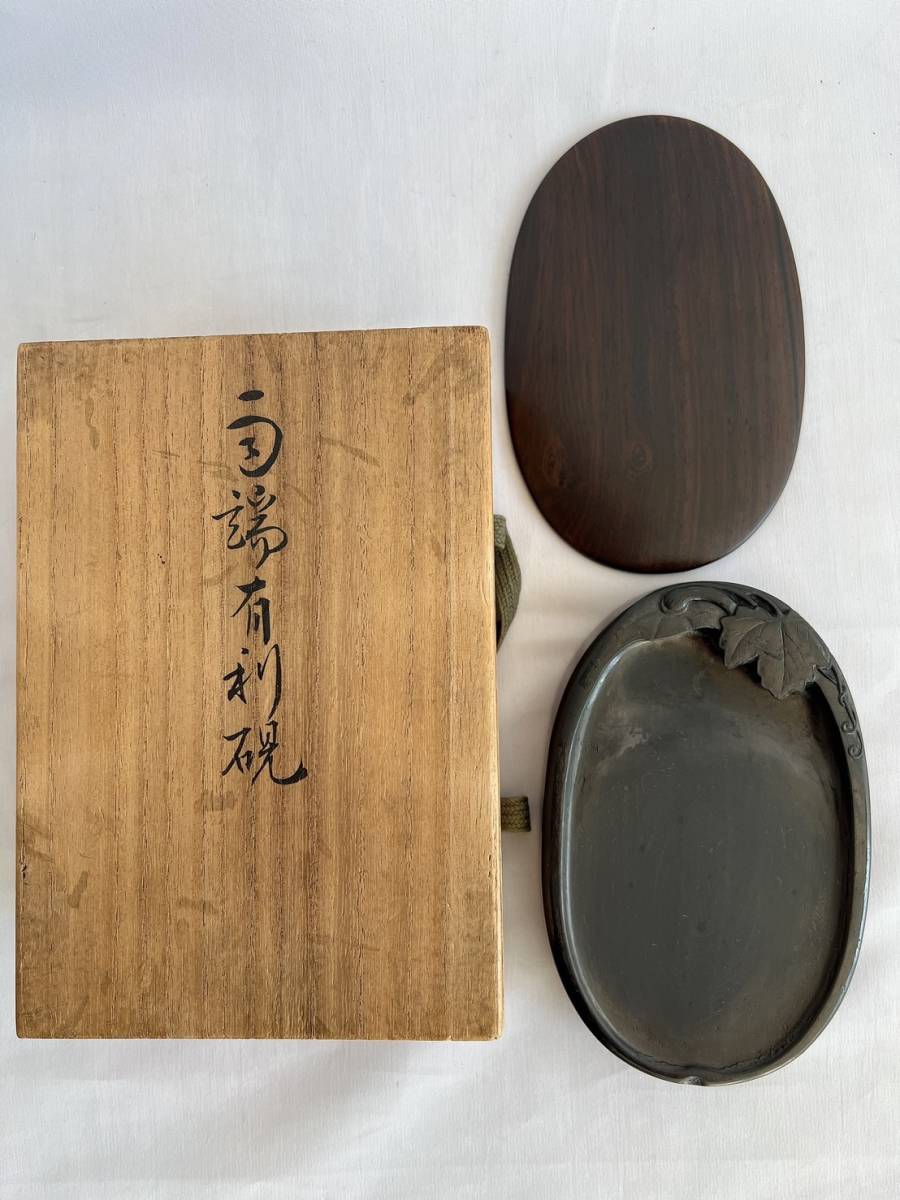 雨端有利硯